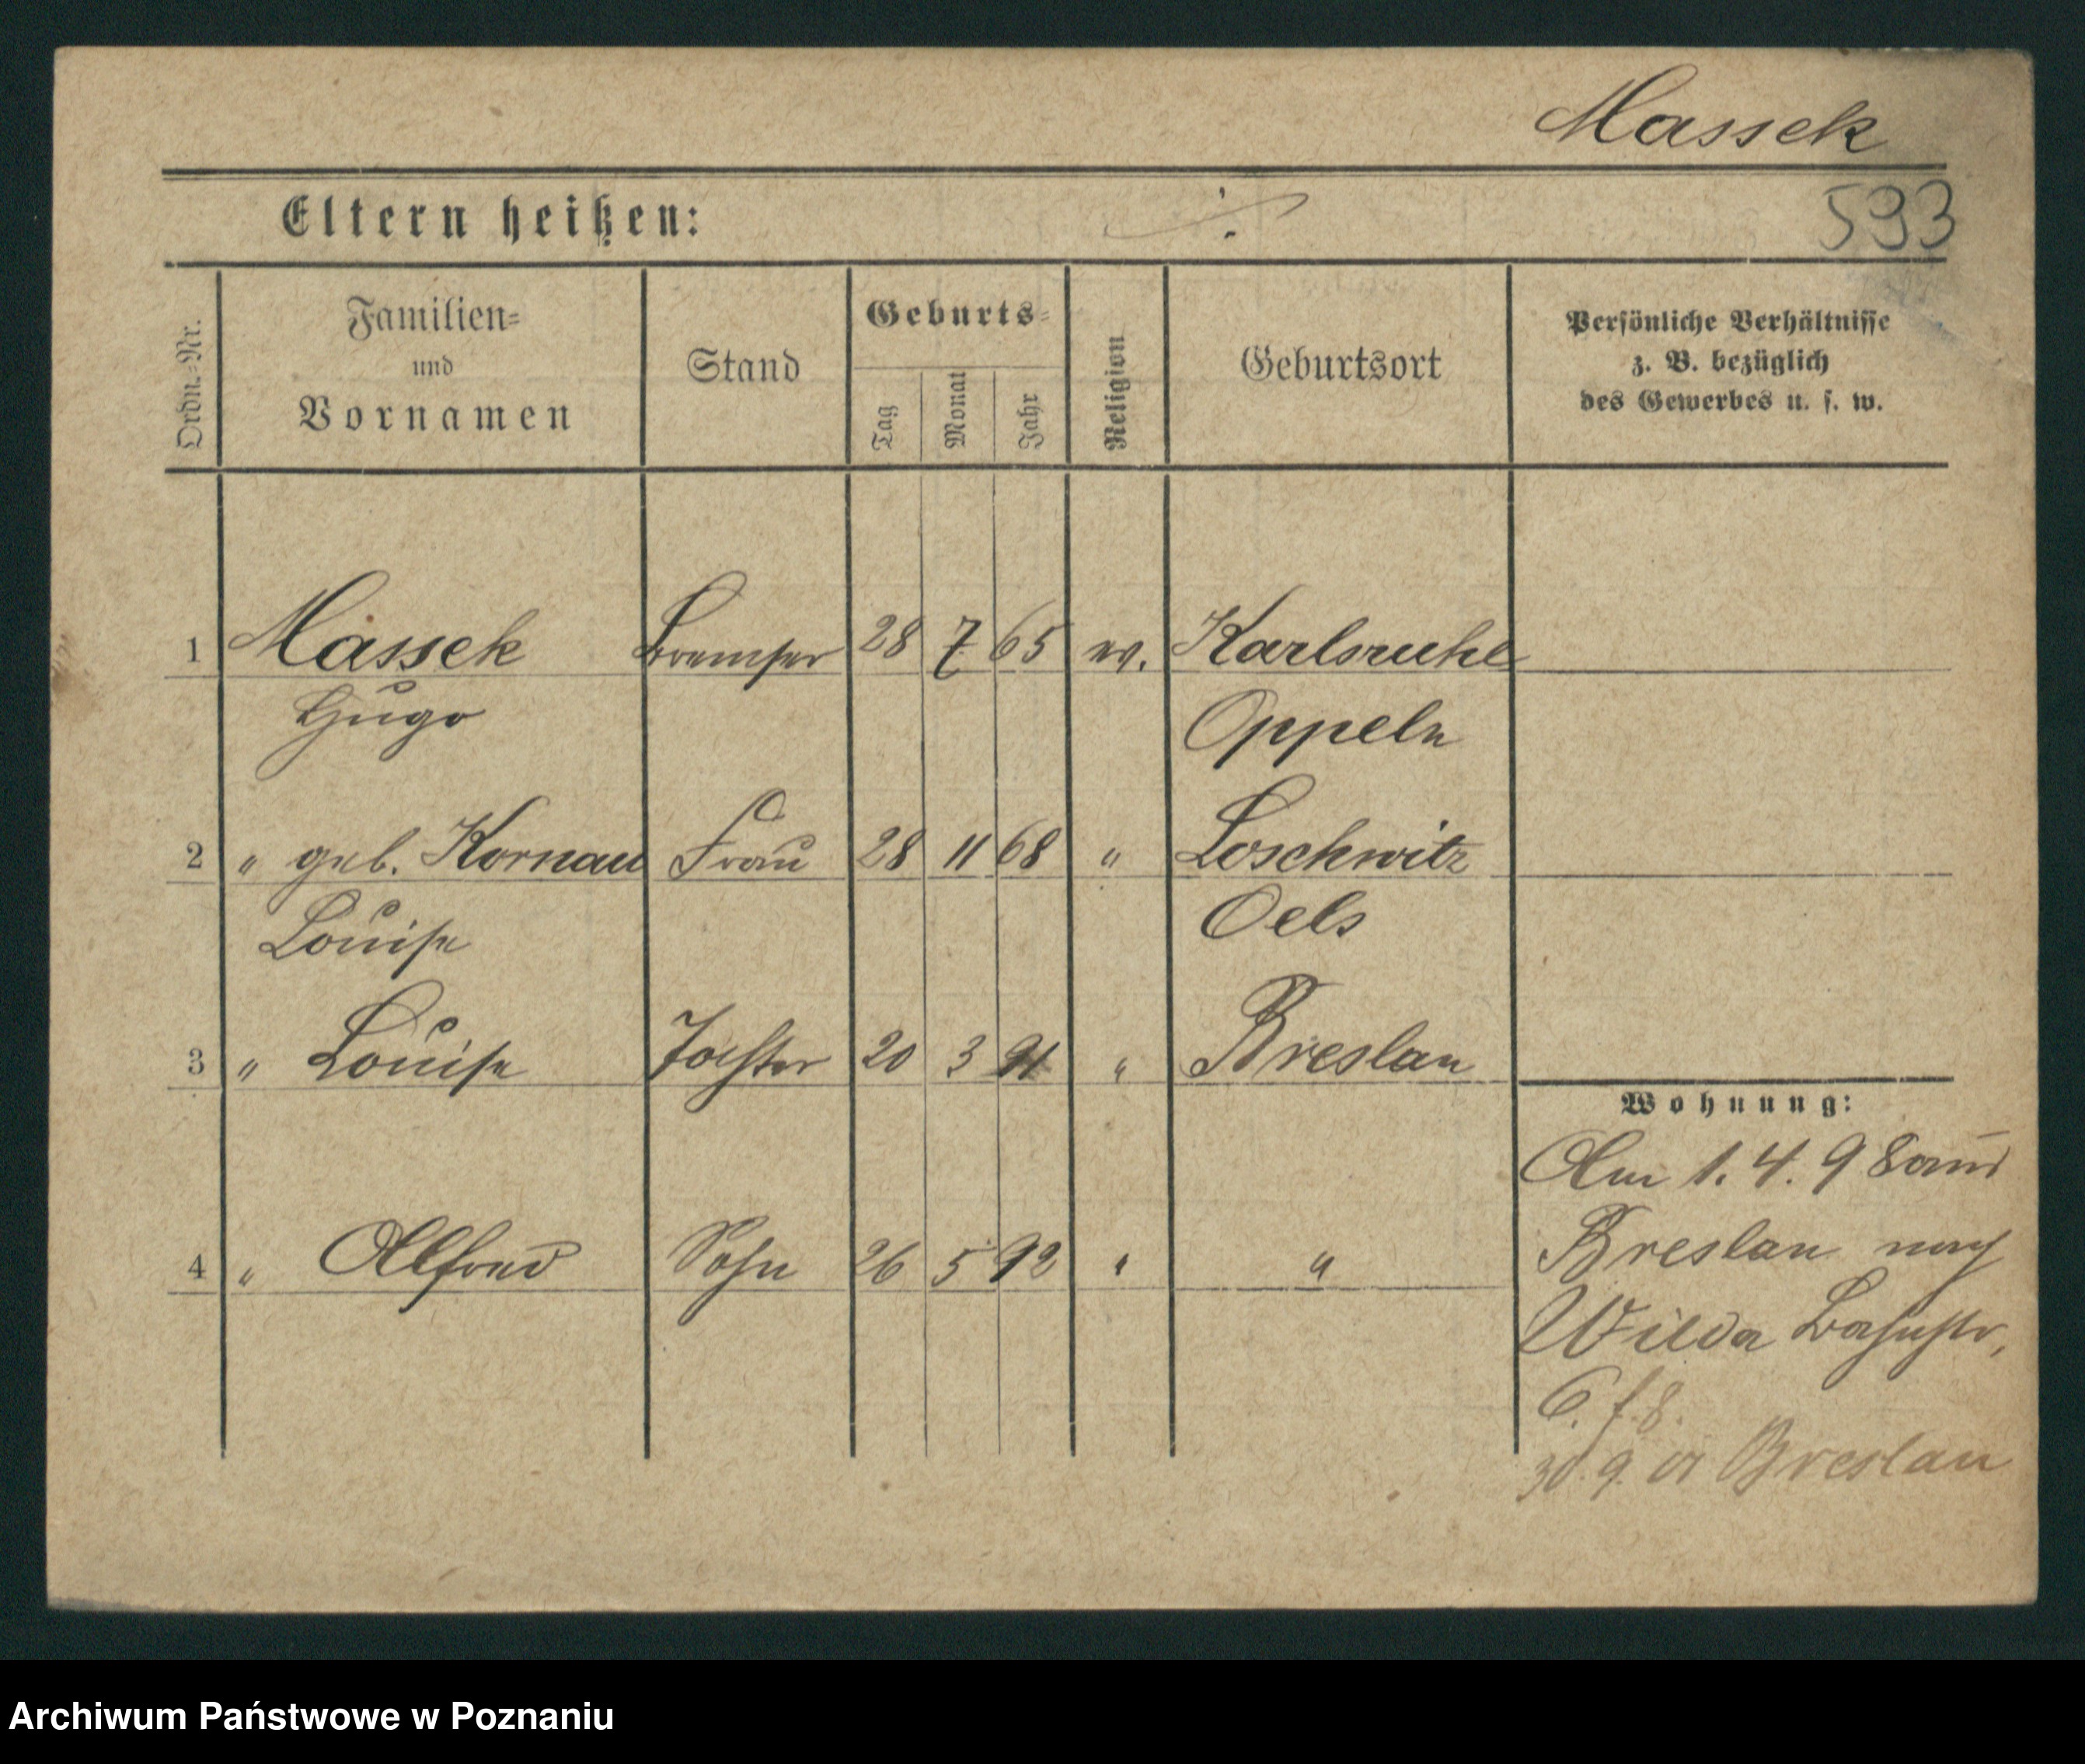 Massek
593
Eltern heißen:
Ordn.-Nr.
Familien-
und
Vornamen
Stand
Geburts-
Tag
Monat
Jahr
Religion
Geburtsort
Persönliche Verhältnisse
z. B. bezüglich
des Gewerbes u. s. w.
1 Massek Bremser 28 7 65 ev. Karlsruhe
Hugo Oppeln
2 " geb. Kornau Frau 28 11 68 " Loschwitz
Louise Oels
3 " Louise Tochter 20 3 91 " Breslau
Wohnung:
Am 1.4.98 aus
4 " Alfred Sohn 26 5 92 " "
Breslau nach
Wilda Bahnstr.
6.
30.9.01 Breslau
Archiwum Państwowe w Poznaniu